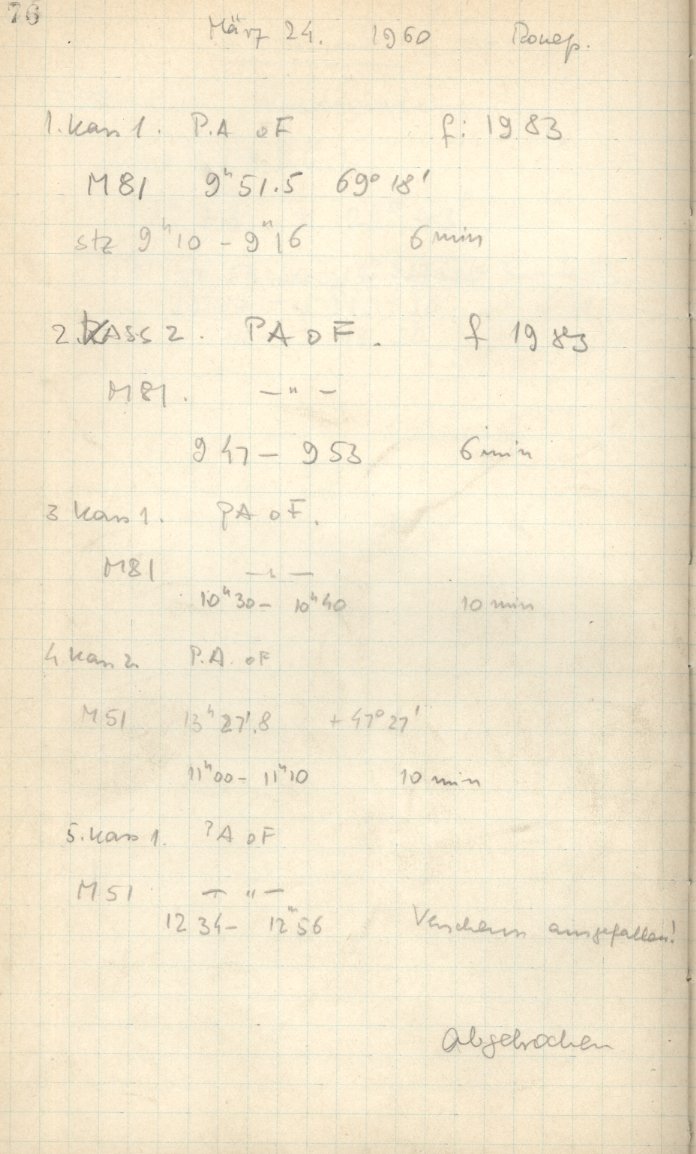 76
März 24. 1960
1. Kass 1. P.A oF f: 1983
M81 9ʰ51.5 69° 18'
stz 9ʰ10 - 9ʰ16 6 min
2. Kass 2. PA oF. f 1983
M81. — " —
9 47 — 9 53 6 min
3 Kass 1. PA oF.
M81 — " —
10ʰ30 - 10ʰ40 10 min
4 Kass 2. P.A. oF
M51 13ʰ 27'.8 + 47° 27'
11ʰ00 - 11ʰ10 10 min
5. Kass 1. PA oF
M51 — " —
12 34 - 12ʰ56 ausgefallen!
abgebrochen